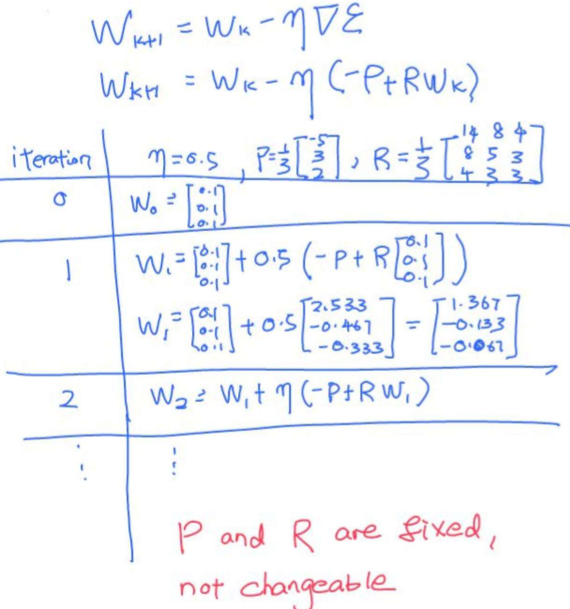 W_{k+1} = W_k - η∇ε
W_{k+1} = W_k - η(-P+RW_k)
iteration η=0.5, P=1/3[-5 3 2], R=1/3[14 8 4; 8 5 3; 4 3 3]
0 W_0 = [0.1 0.1 0.1]
1 W_1 = [0.1 0.1 0.1] + 0.5(-P+R[0.1 0.1 0.1])
W_1 = [0.1 0.1 0.1] + 0.5[2.533 -0.467 -0.333] = [1.367 -0.133 -0.067]
2 W_2 = W_1 + η(-P+RW_1)
⋮ ⋮
P and R are fixed,
not changeable